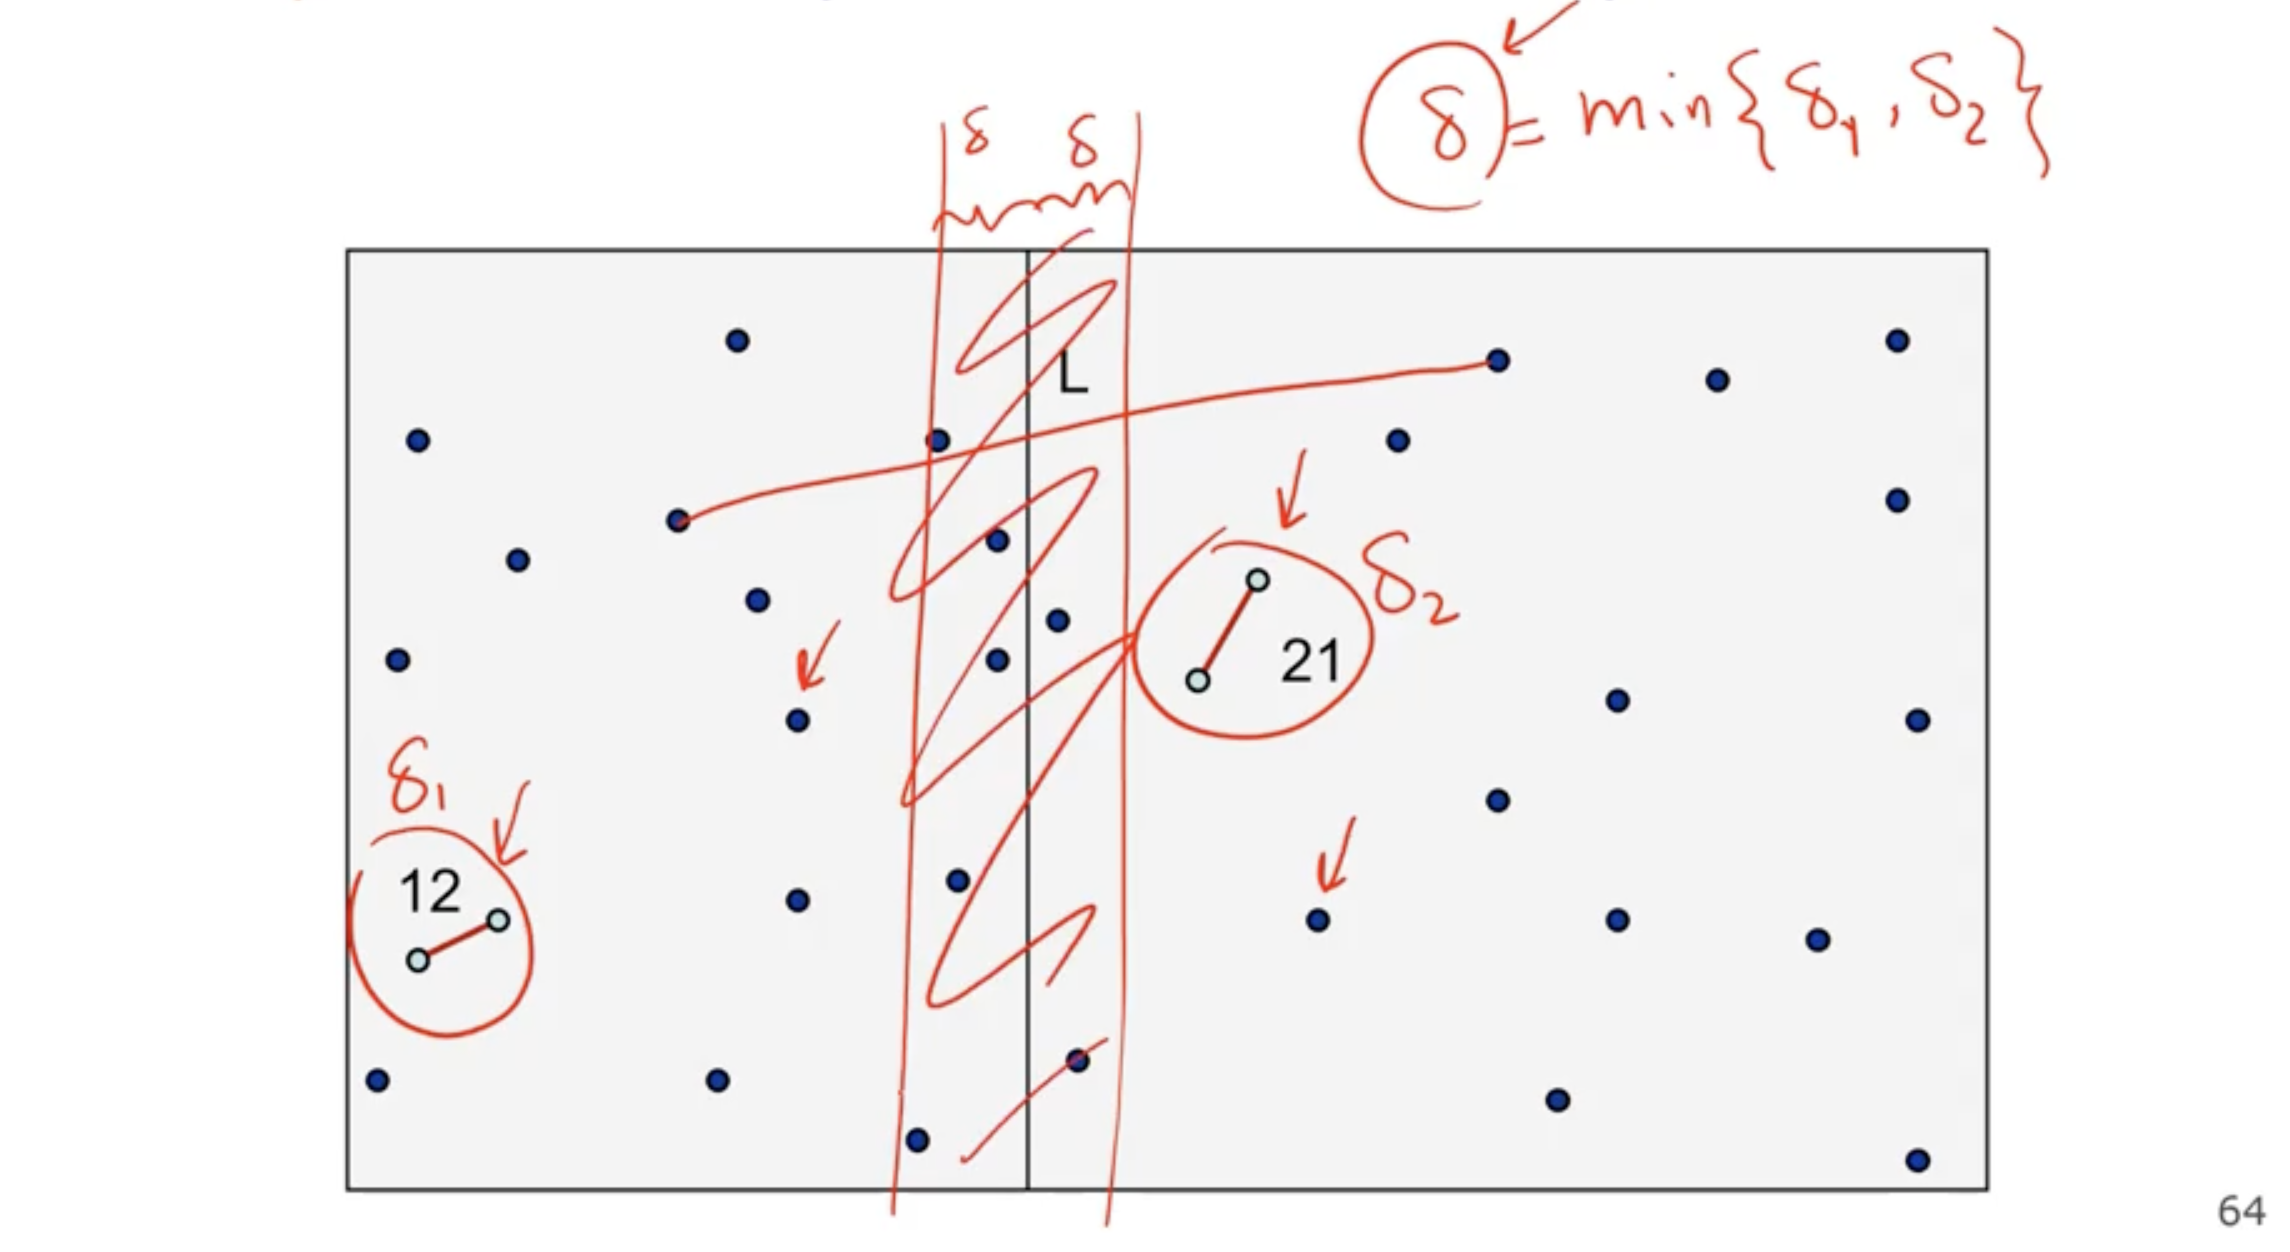 δ = min{δ₁, δ₂}
δ δ
L
δ₂
21
δ₁
12
64